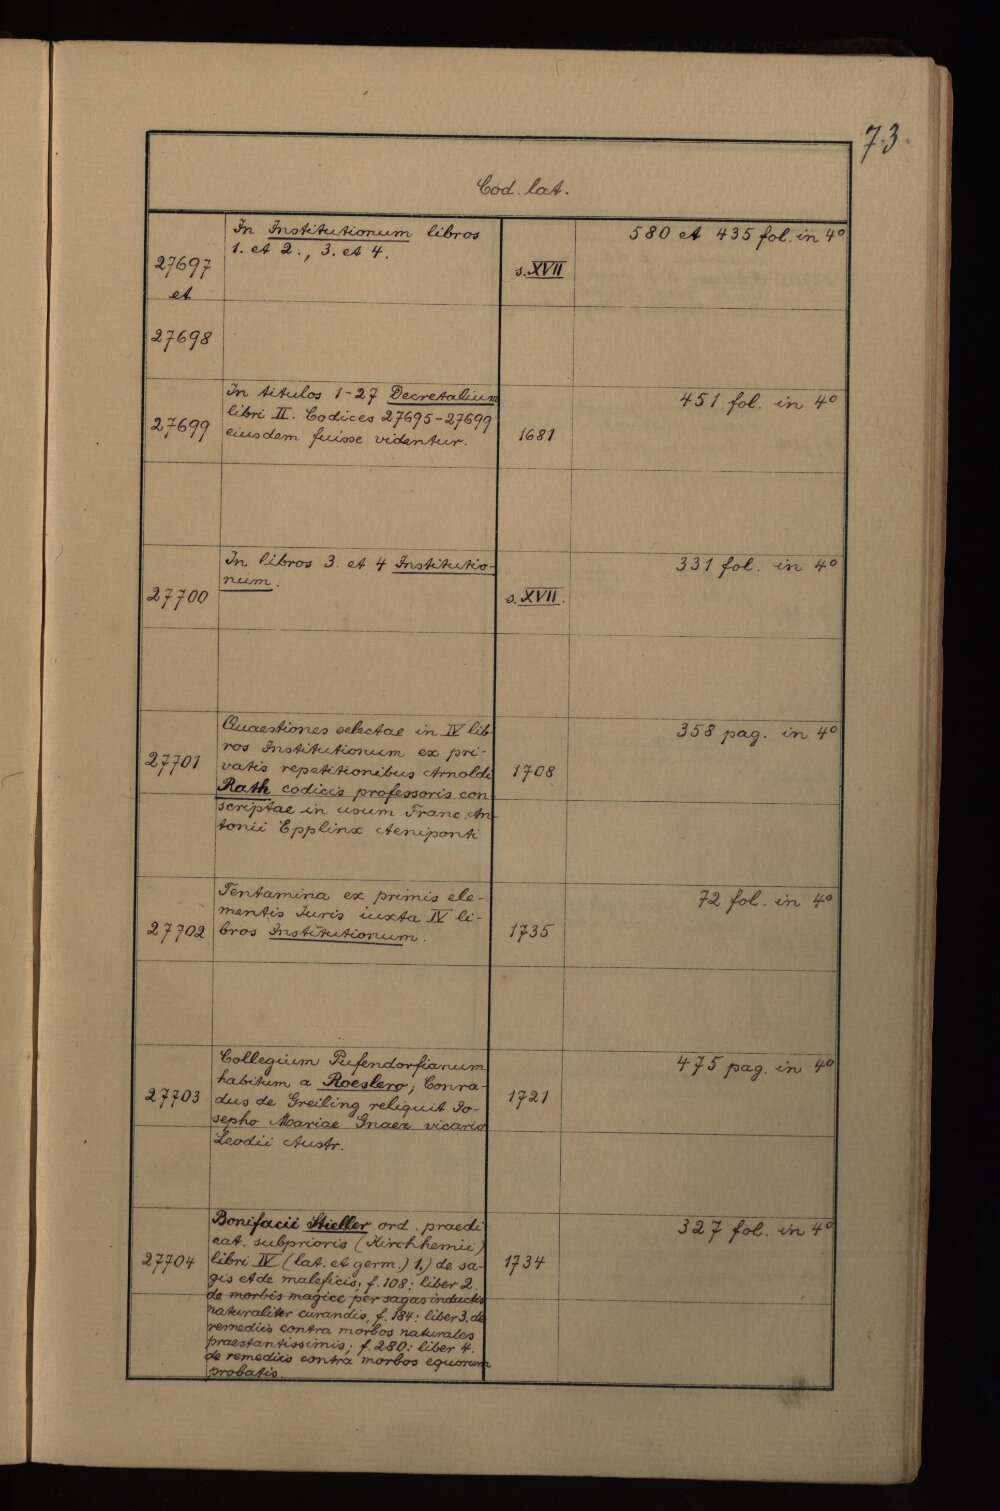 73.
Cod. lat.
27697
et
27698
In Institutionum libros
1. et 2., 3. et 4.
s. XVII
580 et 435 fol. in 4º
27699
In titulos 1-27 Decretalium
libri II. Codices 27695-27699
eiusdem fuisse videntur.
1681
451 fol. in 4º
27700
In libros 3. et 4 Institutio-
num.
s. XVII.
331 fol. in 4º
27701
Quaestiones selectae in IV lib-
ros Institutionum ex pri-
vatis repetitionibus Arnoldi
Rath codicis professoris con-
scriptae in usum Franc. An-
tonii Epplinx Aeniponti
1708
358 pag. in 4º
27702
Tentamina ex primis ele-
mentis Iuris iuxta IV li-
bros Institutionum.
1735
72 fol. in 4º
27703
Collegium Pufendorfianum
habitum a Roeslero; Conra-
dus de Greiling reliquit Jo-
sepho Mariae Gnaex vicario
Leodii Austr.
1721
475 pag. in 4º
27704
Bonifacii Stieller ord. praedi
cat. subprioris (Kirchhemii)
libri IV (lat. et germ.) 1.) de sa-
gis et de maleficis; f. 108: liber 2.
de morbis magice per sagas inductis
naturaliter curandis, f. 184: liber 3. de
remediis contra morbos naturales
praestantissimis; f. 280: liber 4.
de remediis contra morbos equorum
probatis.
1734
327 fol. in 4º